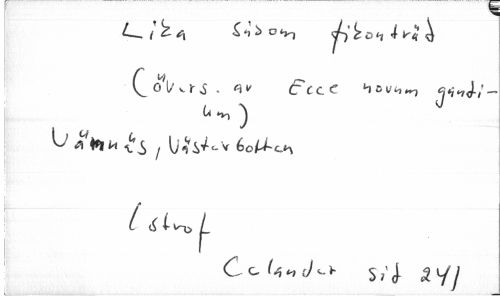 Lika såsom fikonträd
(övers. av Ecce novum gaudi-
um)
Vännäs, Västerbotten
1 strof
Celander sid 241